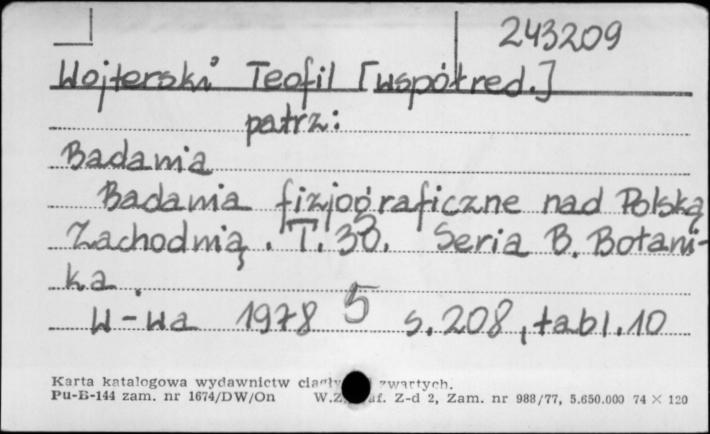 243209
Wojterski Teofil [współred.]
patrz:
Badania
Badania fizjograficzne nad Polską
Zachodnią. T. 30. Seria B. Botani-
ka.
W-wa 1978 5 s. 208, tabl. 10
Karta katalogowa wydawnictw zwartych.
Pu-B-144 zam. nr 1674/DW/On W.Z. Z-d 2, Zam. nr 988/77, 5.650.000 74 × 120